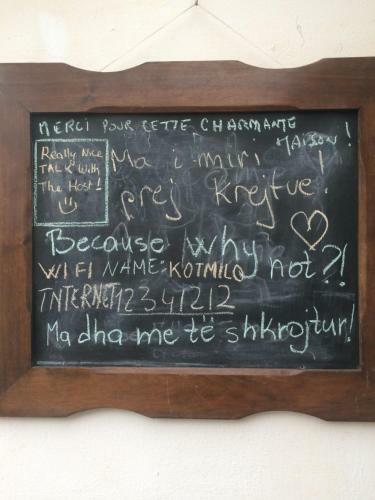 MERCI POUR CETTE CHARMANTE
MAISON!
Really Nice
TALK With
The Host!
Ma i miri
prej Krejtve!
Because why
not?!
WIFI NAME: KOTMILO
INTERNET12341212
Ma dha me të shkrojtur!